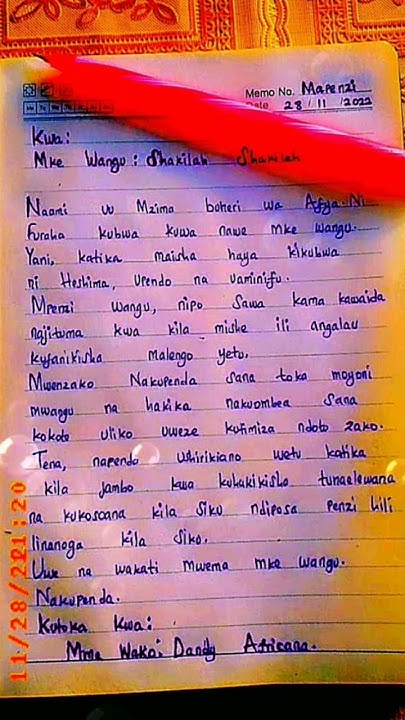 Memo No. Mapenzi
Date 28 / 11 / 2022
Kwa:
Mke Wangu: Shakilah Shakilah
Naami uu Mzima boheri wa Afya. Ni
Furaha kubwa kuwa nawe mke wangu.
Yani, katika maisha haya kikubwa
ni Heshima, upendo na uaminifu.
Mpenzi wangu, nipo sawa kama kawaida
najituma kwa kila mishe ili angalau
kufanikisha malengo yetu.
Mwenzako Nakupenda sana toka moyoni
mwangu na hakika nakuombea sana
kokote uliko uweze kutimiza ndoto zako.
Tena, napenda ushirikiano wetu katika
kila jambo kwa kuhakikisha tunaelewana
na kukosoana kila siku ndiposa penzi hili
linanoga kila siku.
Uwe na wakati Mwema mke wangu.
Nakupenda.
Kutoka Kwa:
Mme Wako: Dandy Africana.